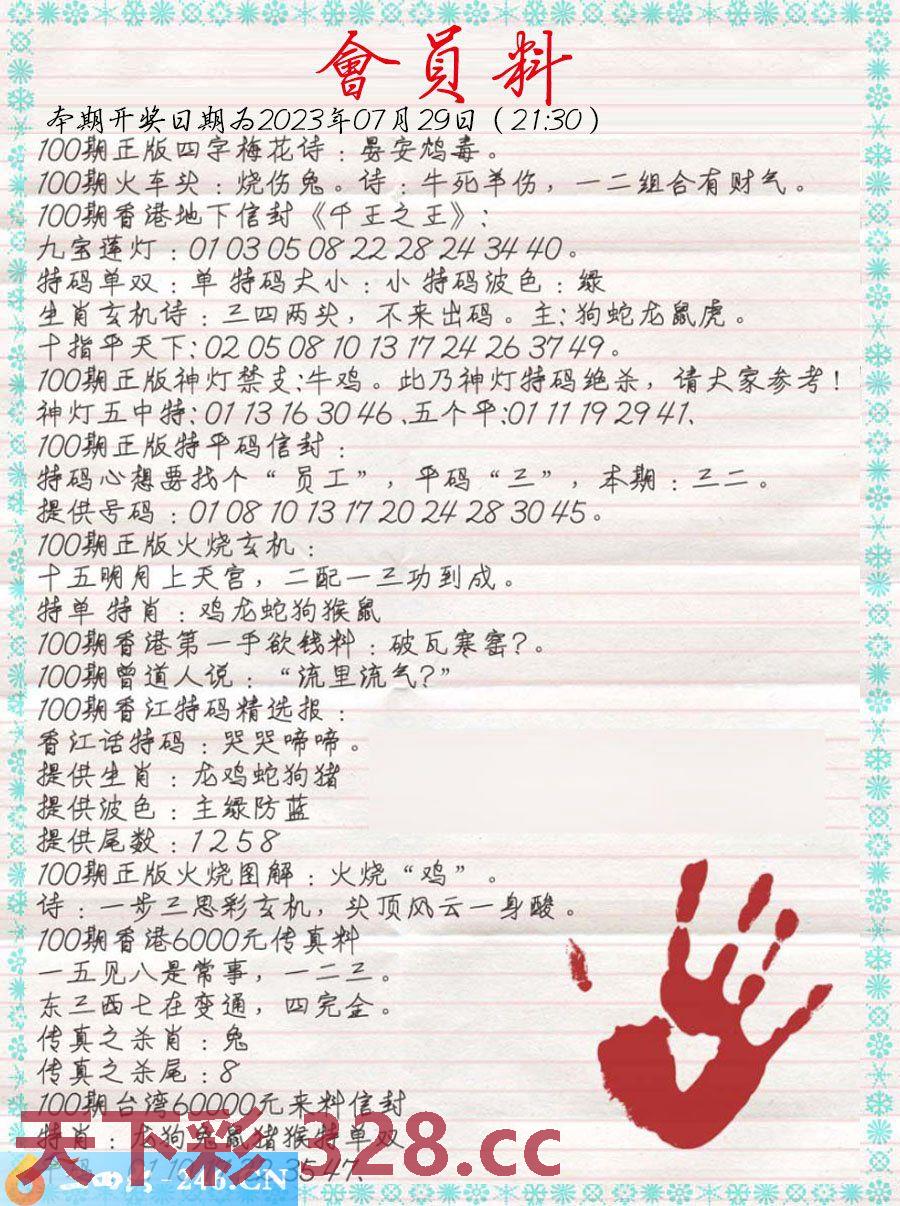 會員料
本期开奖日期为2023年07月29日（21:30）
100期正版四字梅花诗：晏安鸩毒。
100期火车头：烧伤兔。诗：牛死羊伤，一二组合有财气。
100期香港地下信封《千王之王》:
九宝莲灯：01 03 05 08 22 28 24 34 40。
特码单双：单 特码大小：小 特码波色：绿
生肖玄机诗：三四两头，不来出码。主:狗蛇龙鼠虎。
十指平天下:02 05 08 10 13 17 24 26 37 49。
100期正版神灯禁支:牛鸡。此乃神灯特码绝杀，请大家参考！
神灯五中特:01 13 16 30 46 .五个平:01 11 19 29 41.
100期正版特平码信封：
特码心想要找个“员工”，平码“三”，本期：三二。
提供号码：01 08 10 13 17 20 24 28 30 45。
100期正版火烧玄机：
十五明月上天宫，二配一三功到成。
特单 特肖：鸡龙蛇狗猴鼠
100期香港第一手欲钱料：破瓦寒窑?。
100期曾道人说：“流里流气?”
100期香江特码精选报：
香江话特码：哭哭啼啼。
提供生肖：龙鸡蛇狗猪
提供波色：主绿防蓝
提供尾数：1 2 5 8
100期正版火烧图解：火烧“鸡”。
诗：一步三思彩玄机，头顶风云一身酸。
100期香港6000元传真料
一五见八是常事，一二三。
东三西七在变通，四完金。
传真之杀肖：兔
传真之杀尾：8
100期台湾60000元来料信封
特肖：龙狗兔鼠猪猴特单双
天下彩·328.cc
35 47.
-246.CN